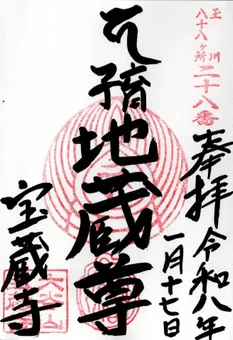 玉川
八十八ヶ所 二十八番
奉拝 令和八年
一月十七日
子育地蔵尊
宝蔵寺